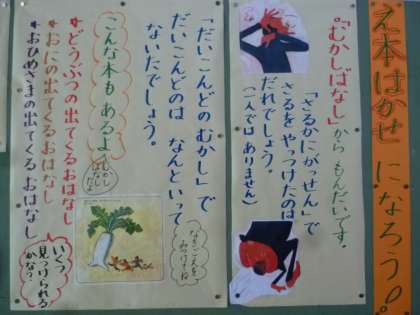 え本はかせになろう!!
『むかしばなし』からもんだいです。
「さるかにがっせん」で
さるをやっつけたのは
だれでしょう。
(二人ではありません)
「だいこんどのむかし」で
だいこんどのは なんといって
ないたでしょう。
なきごえを
みつけてね
こんな本もあるよ
むかし
ばなし
だよ
*どうぶつの出てくるおはなし
*おにの出てくるおはなし
*おひめさまの出てくるおはなし
いくつ
見つけられる
かな?